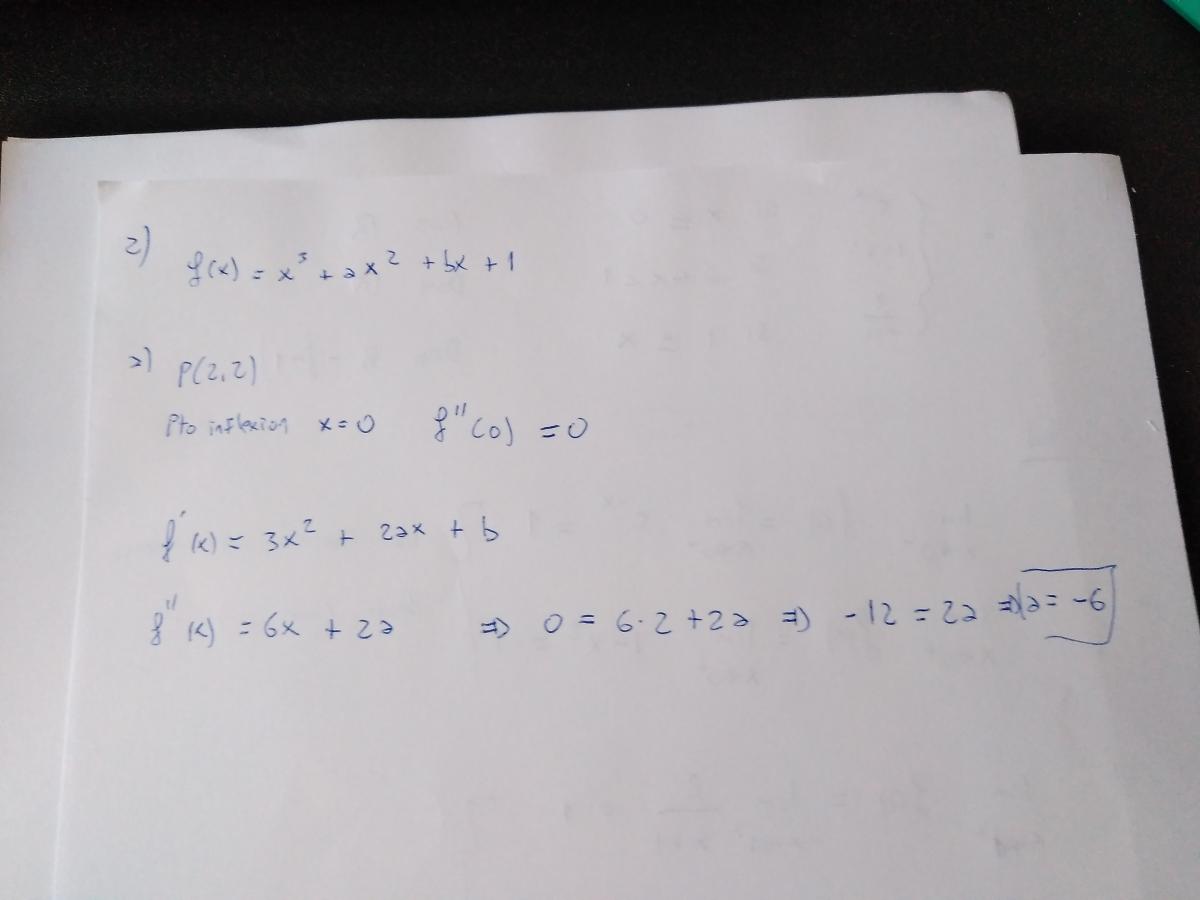 2)
f(x) = x³ + ax² + bx + 1
a) P(2,2)
Pto inflexion x=0 f''(0) = 0
f'(x) = 3x² + 2ax + b
f''(x) = 6x + 2a ⇒ 0 = 6·2 + 2a ⇒ -12 = 2a ⇒ a = -6